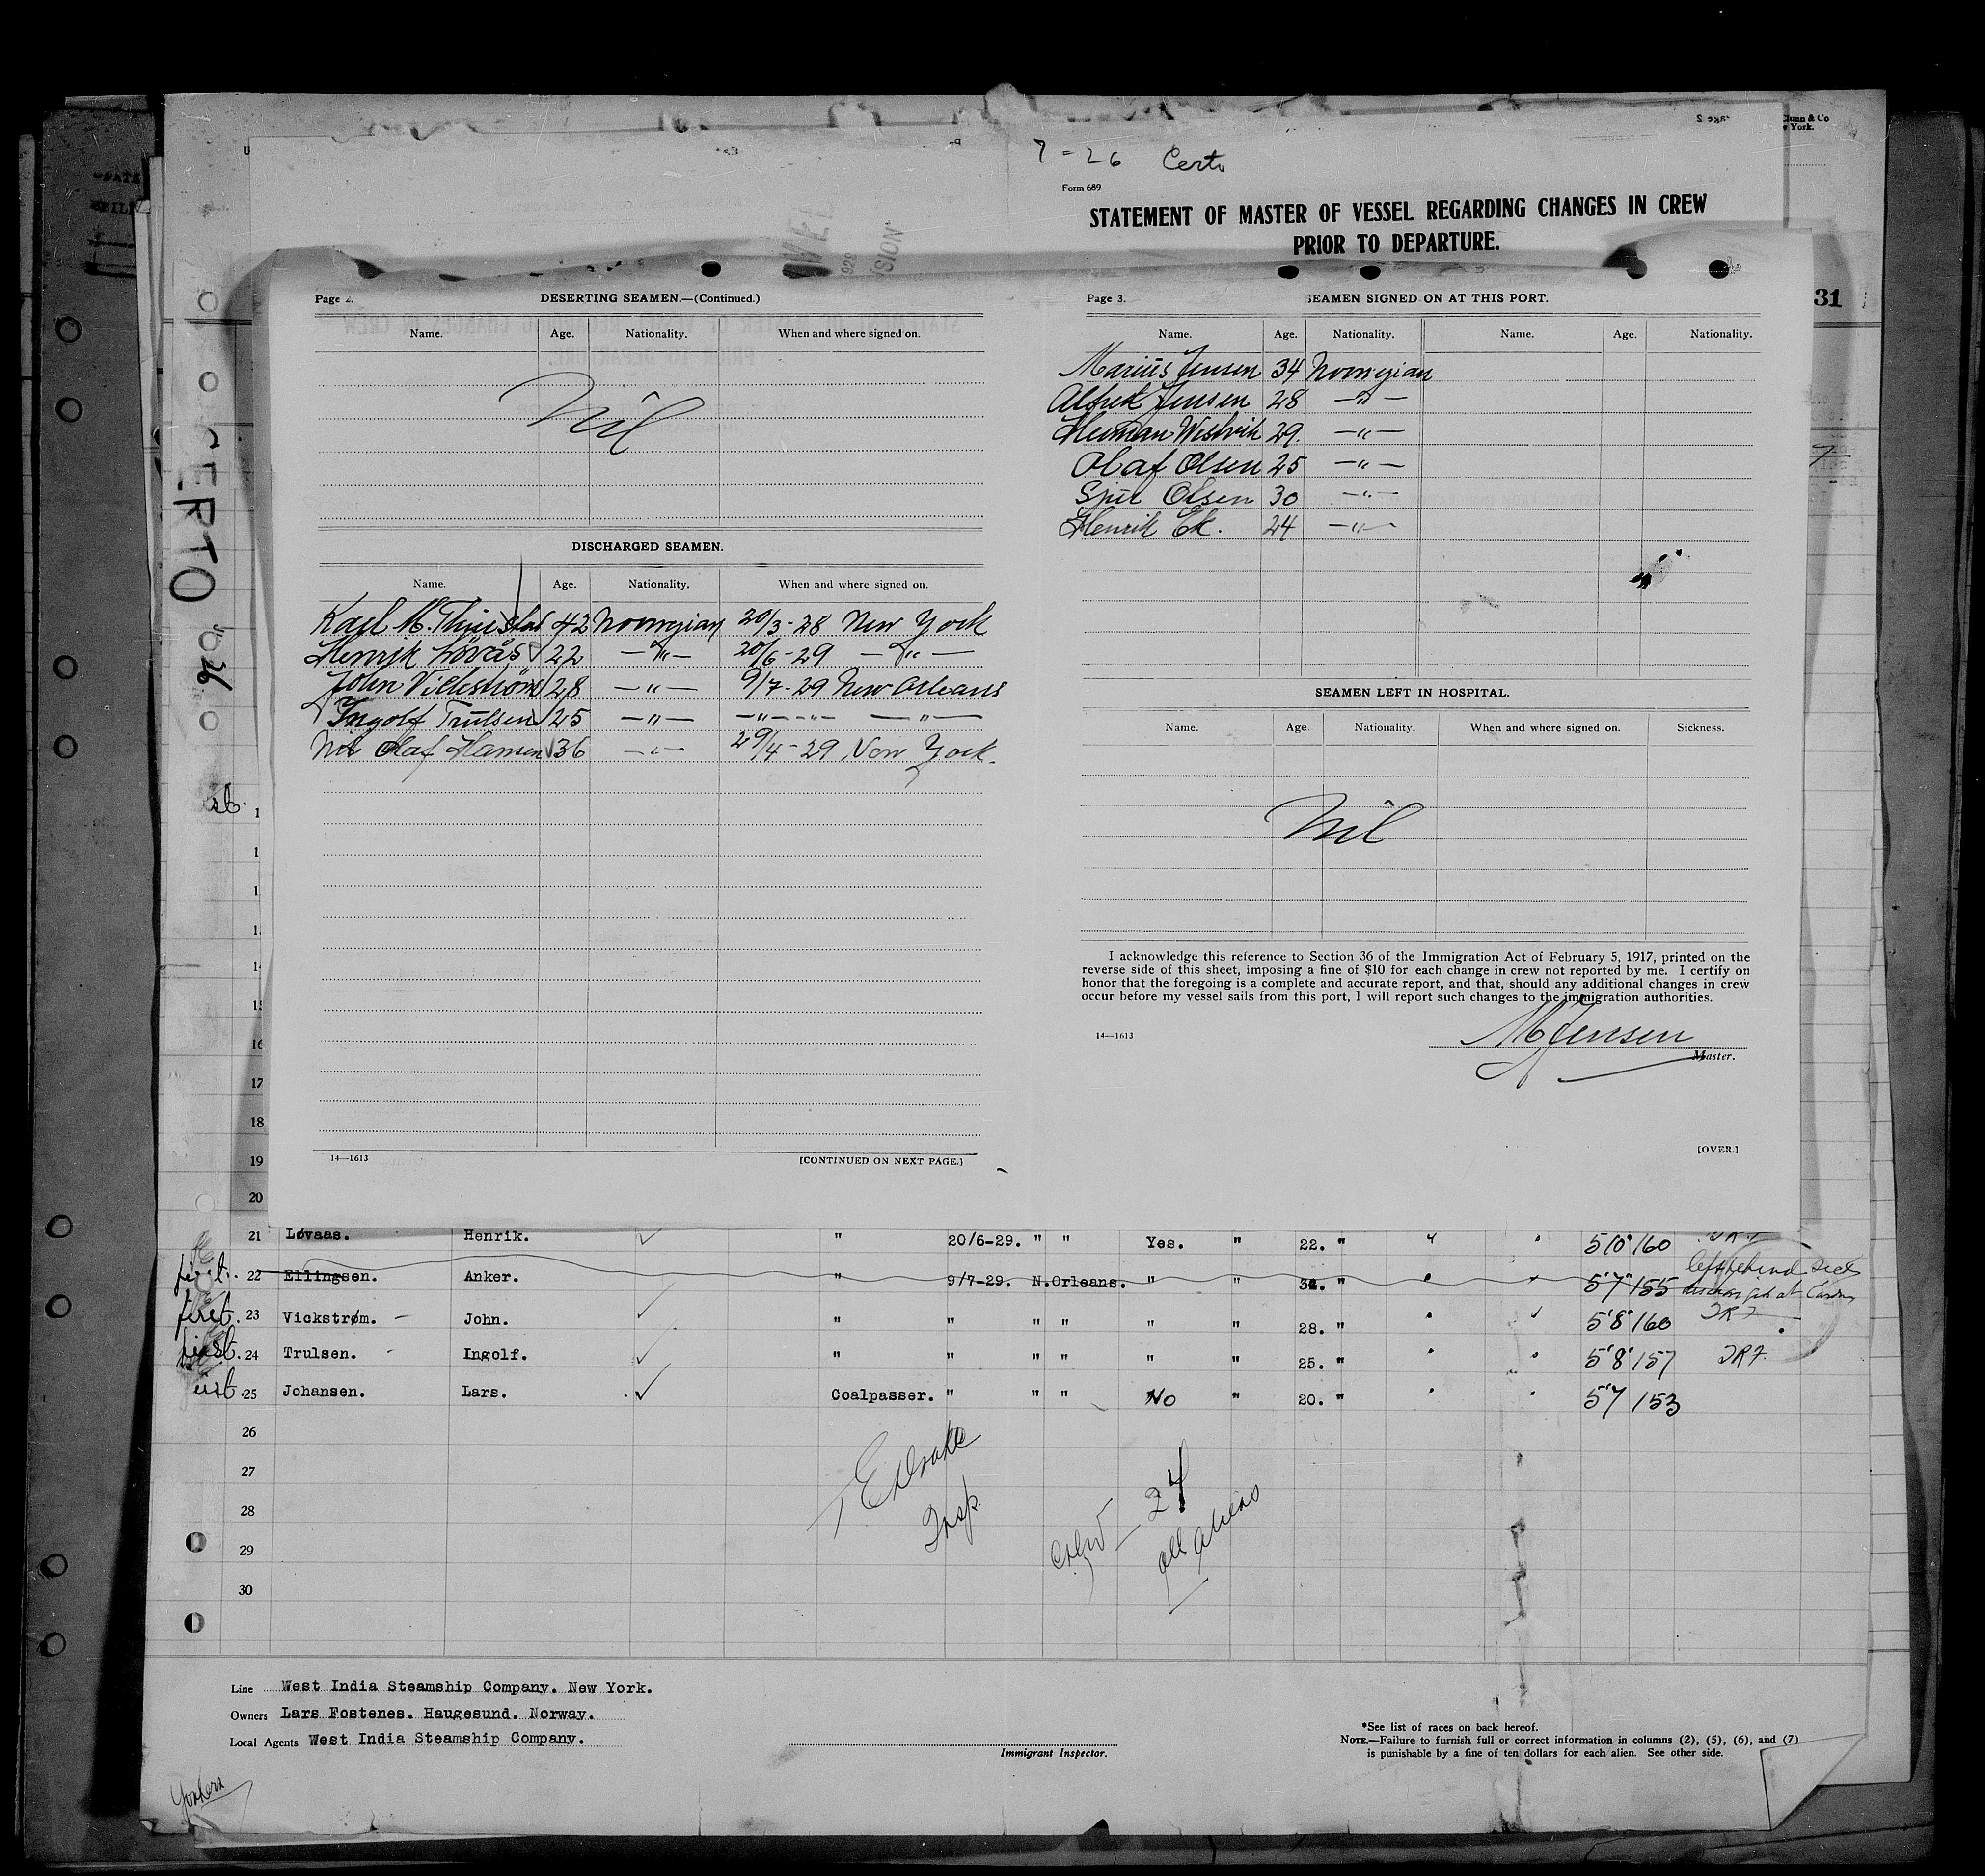 7-26 Certo
Form 689
STATEMENT OF MASTER OF VESSEL REGARDING CHANGES IN CREW
PRIOR TO DEPARTURE.
Clunn & Co
York.
31
CERTO "26
Page 2.
DESERTING SEAMEN.—(Continued.)
Name. Age. Nationality. When and where signed on.
Nil
DISCHARGED SEAMEN.
Name. Age. Nationality. When and where signed on.
Karl M. 42 Norwegian 20/3-28 New York
Henrik Lövås 22 —"— 20/6-29 —"—
John Vickström 28 —"— 9/7-29 New Orleans
Ingolf Trulsen 25 —"— —"— —"— —"—
Olaf Hansen 36 —"— 29/4-29 New York.
14—1613
[CONTINUED ON NEXT PAGE.]
Page 3.
SEAMEN SIGNED ON AT THIS PORT.
Name. Age. Nationality. Name. Age. Nationality.
Marius Jensen 34 Norwegian
Alfred Jensen 28 —"—
Herman 29. —"—
Olaf Olsen 25 —"—
Olsen 30 —"—
Henrik Ek. 24 —"—
SEAMEN LEFT IN HOSPITAL.
Name. Age. Nationality. When and where signed on. Sickness.
Nil
I acknowledge this reference to Section 36 of the Immigration Act of February 5, 1917, printed on the
reverse side of this sheet, imposing a fine of $10 for each change in crew not reported by me. I certify on
honor that the foregoing is a complete and accurate report, and that, should any additional changes in crew
occur before my vessel sails from this port, I will report such changes to the immigration authorities.
14—1613
M Jensen
Master.
[OVER.]
16
17
18
19
20
21 Løvaas. Henrik. " 20/6-29. " " Yes. " 22. " " " 5'10" 160
first. 22 Ellingsen. Anker. " 9/7-29. N.Orleans. " " 34. " " 5'7" 155 left behind sick
discharged at
first. 23 Vickstrøm. John. " " " " " " 28. " " " 5'8" 160
first. 24 Trulsen. Ingolf. " " " " " " 25. " " " 5'8" 157
25 Johansen. Lars. Coalpasser. " " " No " 20. " " " 5'7 153
26
27
28
29
30
Drake
Insp.
Crew — 24
all aliens
Line West India Steamship Company. New York.
Owners Lars Fostenes. Haugesund. Norway.
Local Agents West India Steamship Company.
Immigrant Inspector.
*See list of races on back hereof.
NOTE.—Failure to furnish full or correct information in columns (2), (5), (6), and (7)
is punishable by a fine of ten dollars for each alien. See other side.
Yonkers